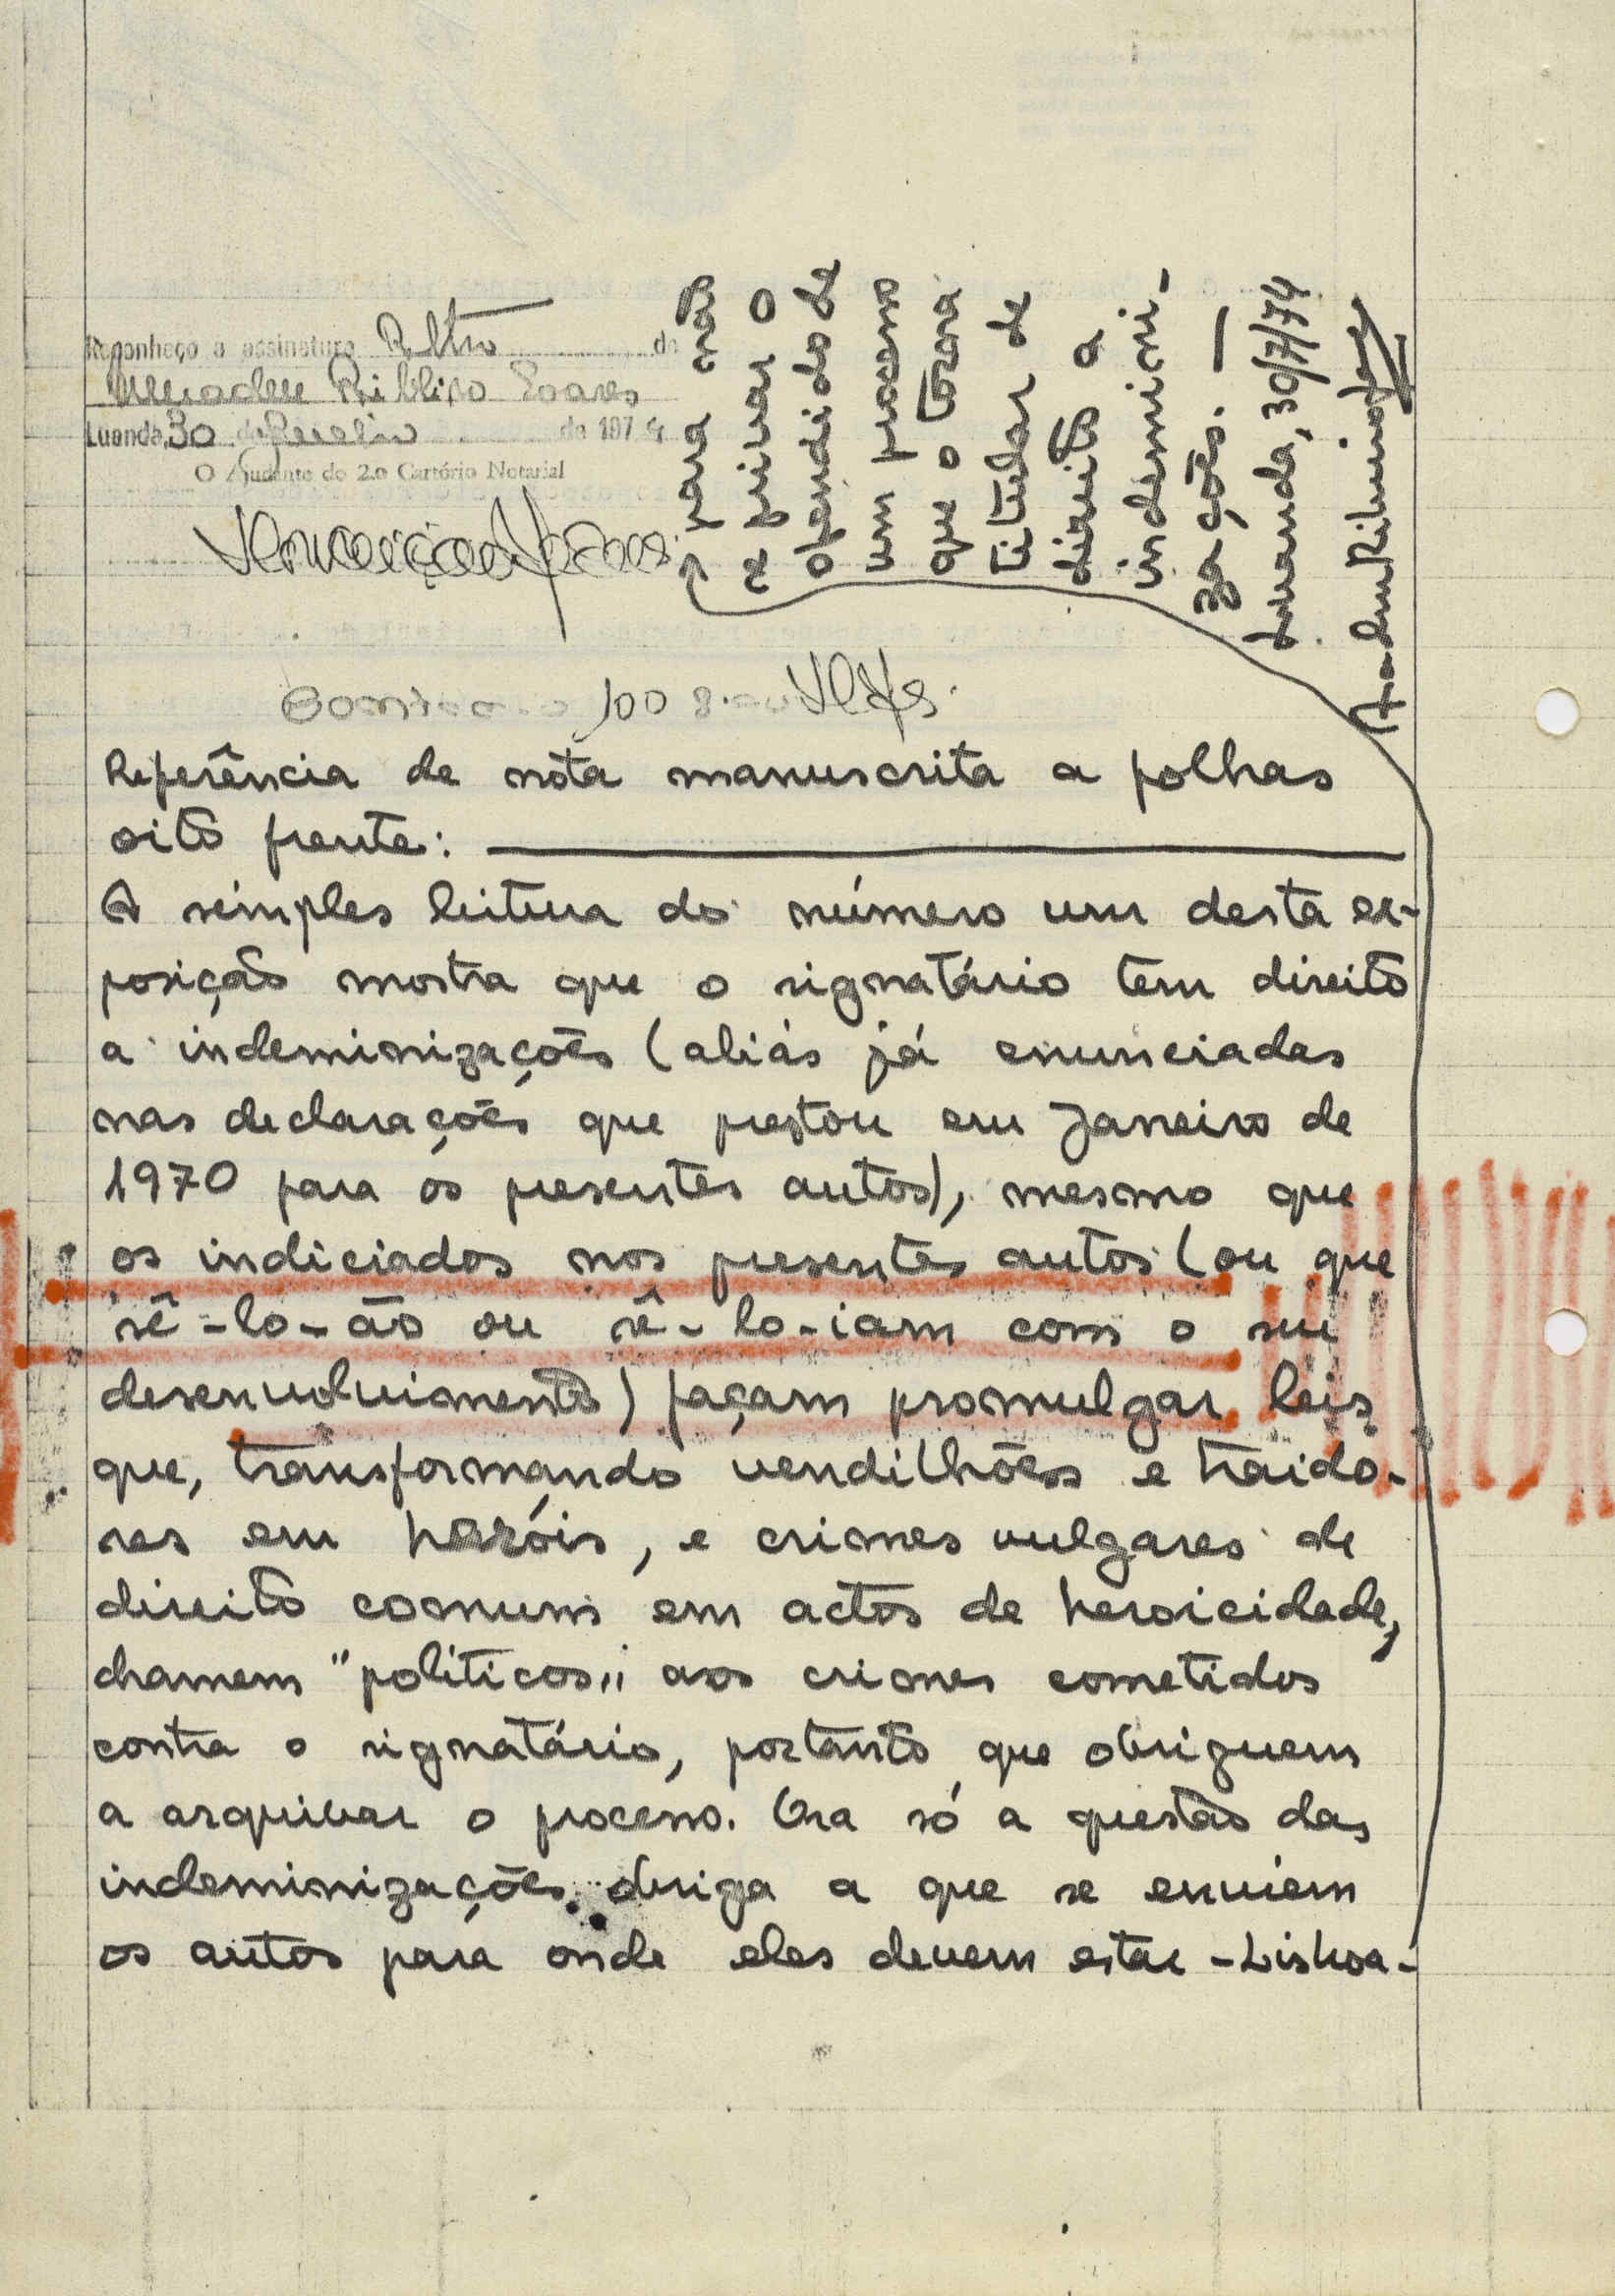 Reconheço a assinatura Retro de
Amadeu Ribeiro Soares
Luanda, 30 de Julho de 1974
O Ajudante do 2.o Cartório Notarial
100
Referência de nota manuscrita a folhas
oito frente:
A simples leitura do número um desta ex-
posição mostra que o signatário tem direito
a indeminizações (aliás já enunciadas
nas declarações que prestou em Janeiro de
1970 para os presentes autos), mesmo que
os indiciados nos presentes autos (ou que
sê-lo-ão ou sê-lo-iam com o seu
desenvolvimento) façam promulgar leis
que, transformando vendilhões e traido-
res em heróis, e crimes vulgares de
direito comum em actos de heroicidade,
chamem "políticos" aos crimes cometidos
contra o signatário, portanto que obriguem
a arquivar o processo. Ora só a questão das
indeminizações obriga a que se enviem
os autos para onde eles devem estar - Lisboa -
para não
se privar o
ofendido de
um processo
que o torna
titular de
direito a
indemini-
zações. —
Luanda, 30/7/74